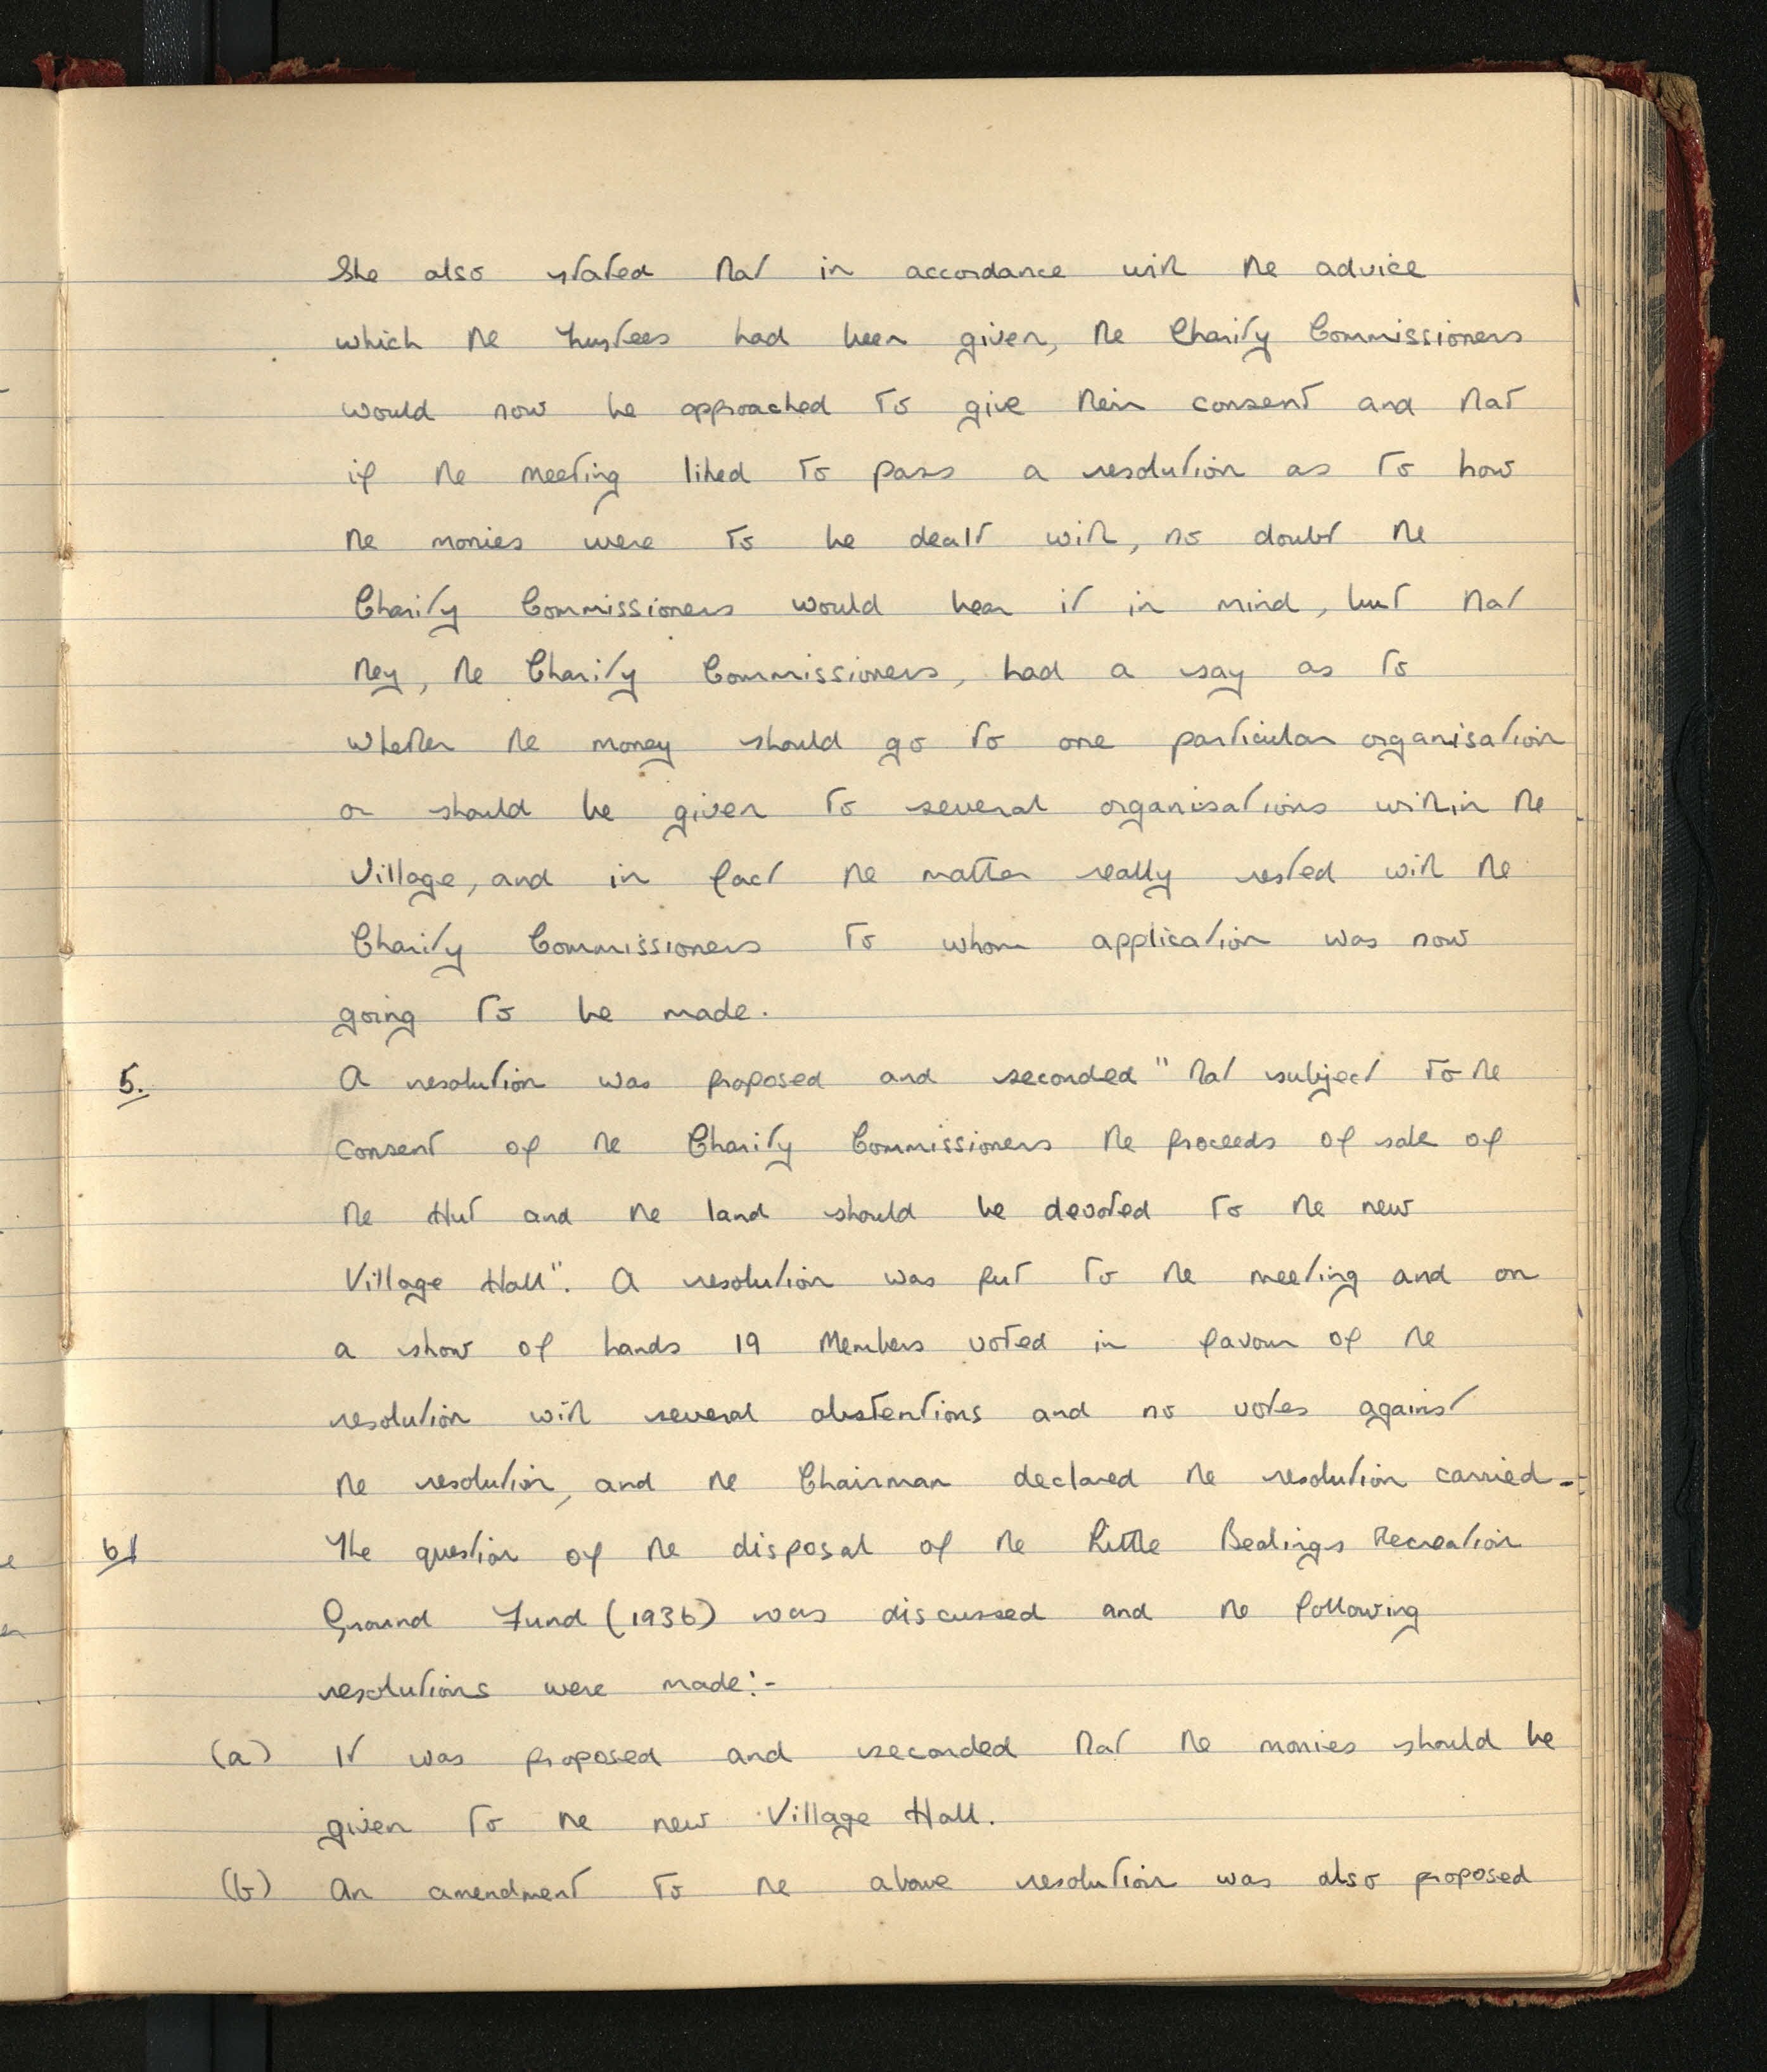 She also stated that in accordance with the advice
which the Trustees had been given, the Charity Commissioners
would now be approached to give their consent and that
if the meeting liked to pass a resolution as to how
the monies were to be dealt with, no doubt the
Charity Commissioners would bear it in mind, but that
they, the Charity Commissioners, had a say as to
whether the money should go to one particular organisation
or should be given to several organisations within the
Village, and in fact the matter really rested with the
Charity Commissioners to whom application was now
going to be made.
5. A resolution was proposed and seconded "that subject to the
consent of the Charity Commissioners the proceeds of sale of
the Hut and the land should be devoted to the new
Village Hall". A resolution was put to the meeting and on
a show of hands 19 Members voted in favour of the
resolution with several abstentions and no votes against
the resolution, and the Chairman declared the resolution carried -
6 The question of the disposal of the Little Bealings Recreation
Ground Fund (1936) was discussed and the following
resolutions were made:-
(a) It was proposed and seconded that the monies should be
given to the new Village Hall.
(b) An amendment to the above resolution was also proposed